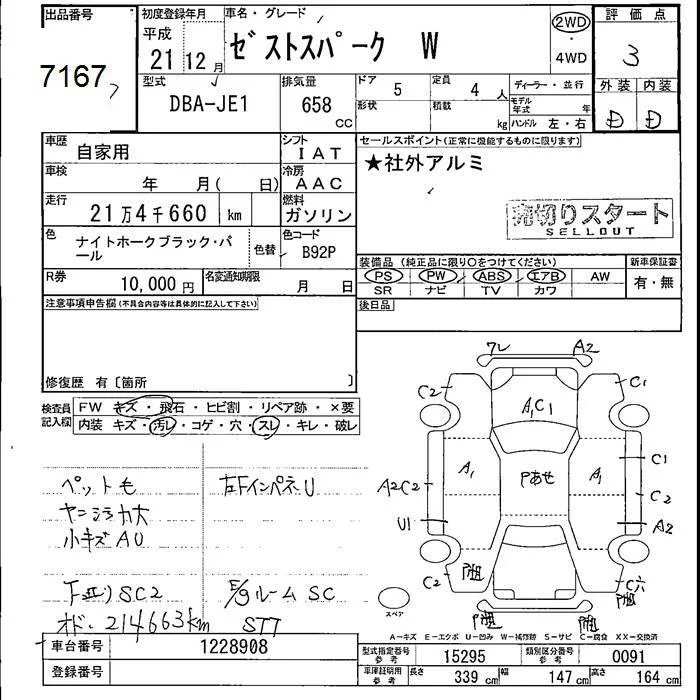 出品番号 初度登録年月 車名・グレード 評価点
7167
平成
21 12月
ゼストスパーク W
2WD
・
4WD
3
型式
DBA-JE1
排気量
658 CC
ドア 5
定員 4人
ディーラー・並行
形状
積載 kg
モデル年式 年
ハンドル 左・右
外装 内装
D D
車歴
自家用
シフト
IAT
セールスポイント(正常に機能するものに限ります)
★社外アルミ
車検
年 月( 日)
冷房
AAC
走行
21万4千660 km
燃料
ガソリン
売切りスタート
SELLOUT
色
ナイトホークブラック・パール
色替
色コード
B92P
装備品(純正品に限り○をつけてください) 新車保証書
PS PW ABS エアB AW
SR ナビ TV カワ
有・無
R券
10,000円
名変通知期限
月 日
注意事項申告欄(不具合内容等は具体的に記入して下さい)
後日品
修復歴 有〔箇所 〕
検査員記入欄
FW キズ・飛石・ヒビ割・リペア跡・×要
内装 キズ・汚レ・コゲ・穴・スレ・キレ・破レ
ペット毛
左Fインパネ U
小キズ A U
SC2
E/gルーム SC
オド. 214663km
STT
ワレ A2
C2 C1
A1C1
A1 Pあせ A1
C1
A2C2 C2
U1 A2
C2
スペア
A-キズ E-エクボ U-凹み W-補修跡 S-サビ C-腐食 XX-交換済
車台番号
1228908
登録番号
型式指定番号
参考
15295
類別区分番号
参考
0091
車庫証明用
参考
長さ 339 cm
幅 147 cm
高さ 164 cm